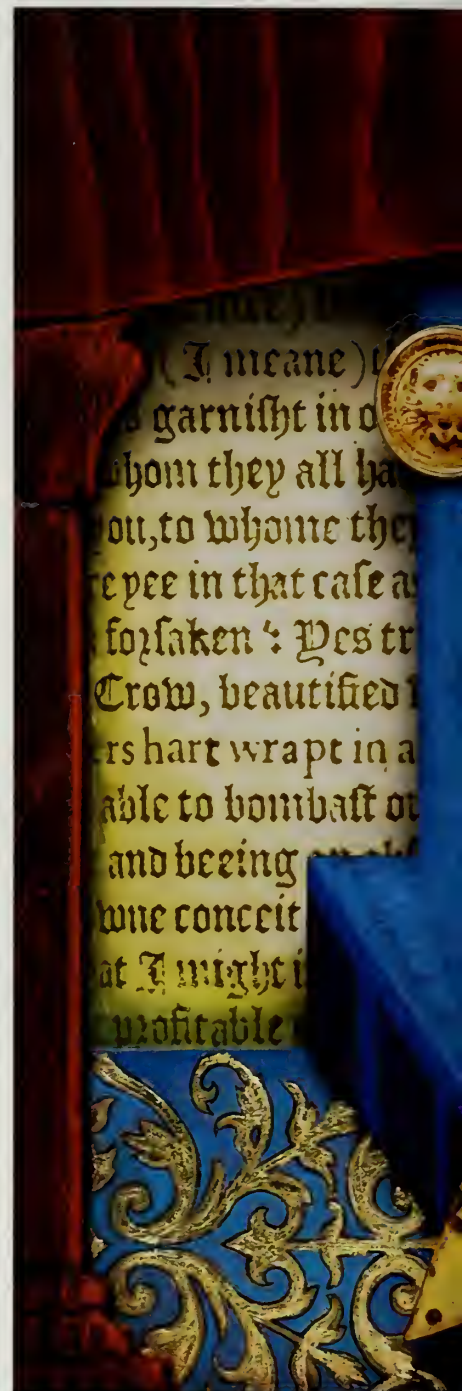 (I meane) t
garniſht in o
whom they all ha
ou, to whome they
re yee in that caſe a
forſaken : Yes tr
Crow, beautified
rs hart wrapt in a
able to bombaſt ou
and beeing
wne conceit
at I might i
profitable